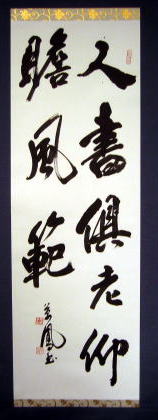 人書俱老仰
瞻風範